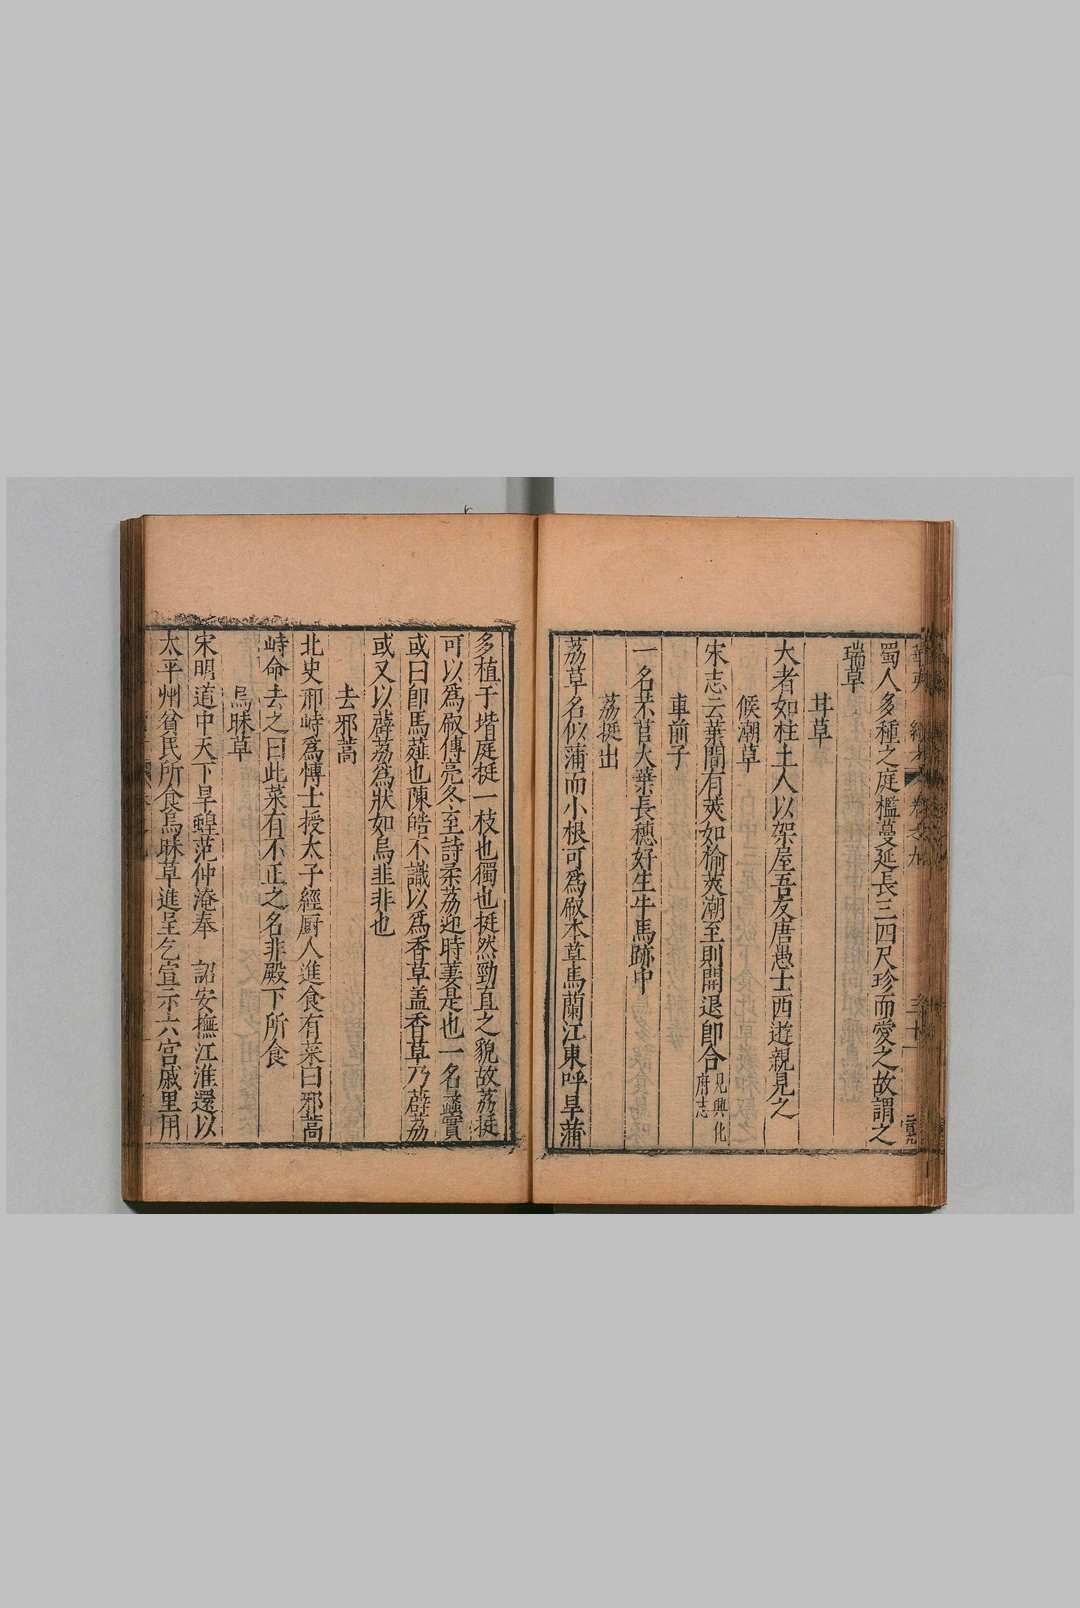 蜀人多種之庭檻蔓延長三四尺珍而愛之故謂之
瑞草
茸草
大者如柱土人以架屋吾友唐愚士西遊親見之
候潮草
宋志云葉間有莢如榆莢潮至則開退即合見興化府志
車前子
一名芣苢大葉長穗好生牛馬跡中
荔挺出
荔草名似蒲而小根可為㕞本草馬蘭江東呼旱蒲
多植于堦庭挺一枝也獨也挺然勁直之貌故荔挺
可以為㕞傳亮冬至詩柔荔迎時萋是也一名蠡實
或曰即馬薤也陳皓不識以為香草盖香草乃薜荔
或又以薜荔為狀如烏韭非也
去邪蒿
北史邢峙為博士授太子經厨人進食有菜曰邪蒿
峙命去之曰此菜有不正之名非殿下所食
烏昧草
宋明道中天下旱蝗范仲淹奉 詔安撫江淮還以
太平州貧民所食烏昧草進呈乞宣示六宮戚里用